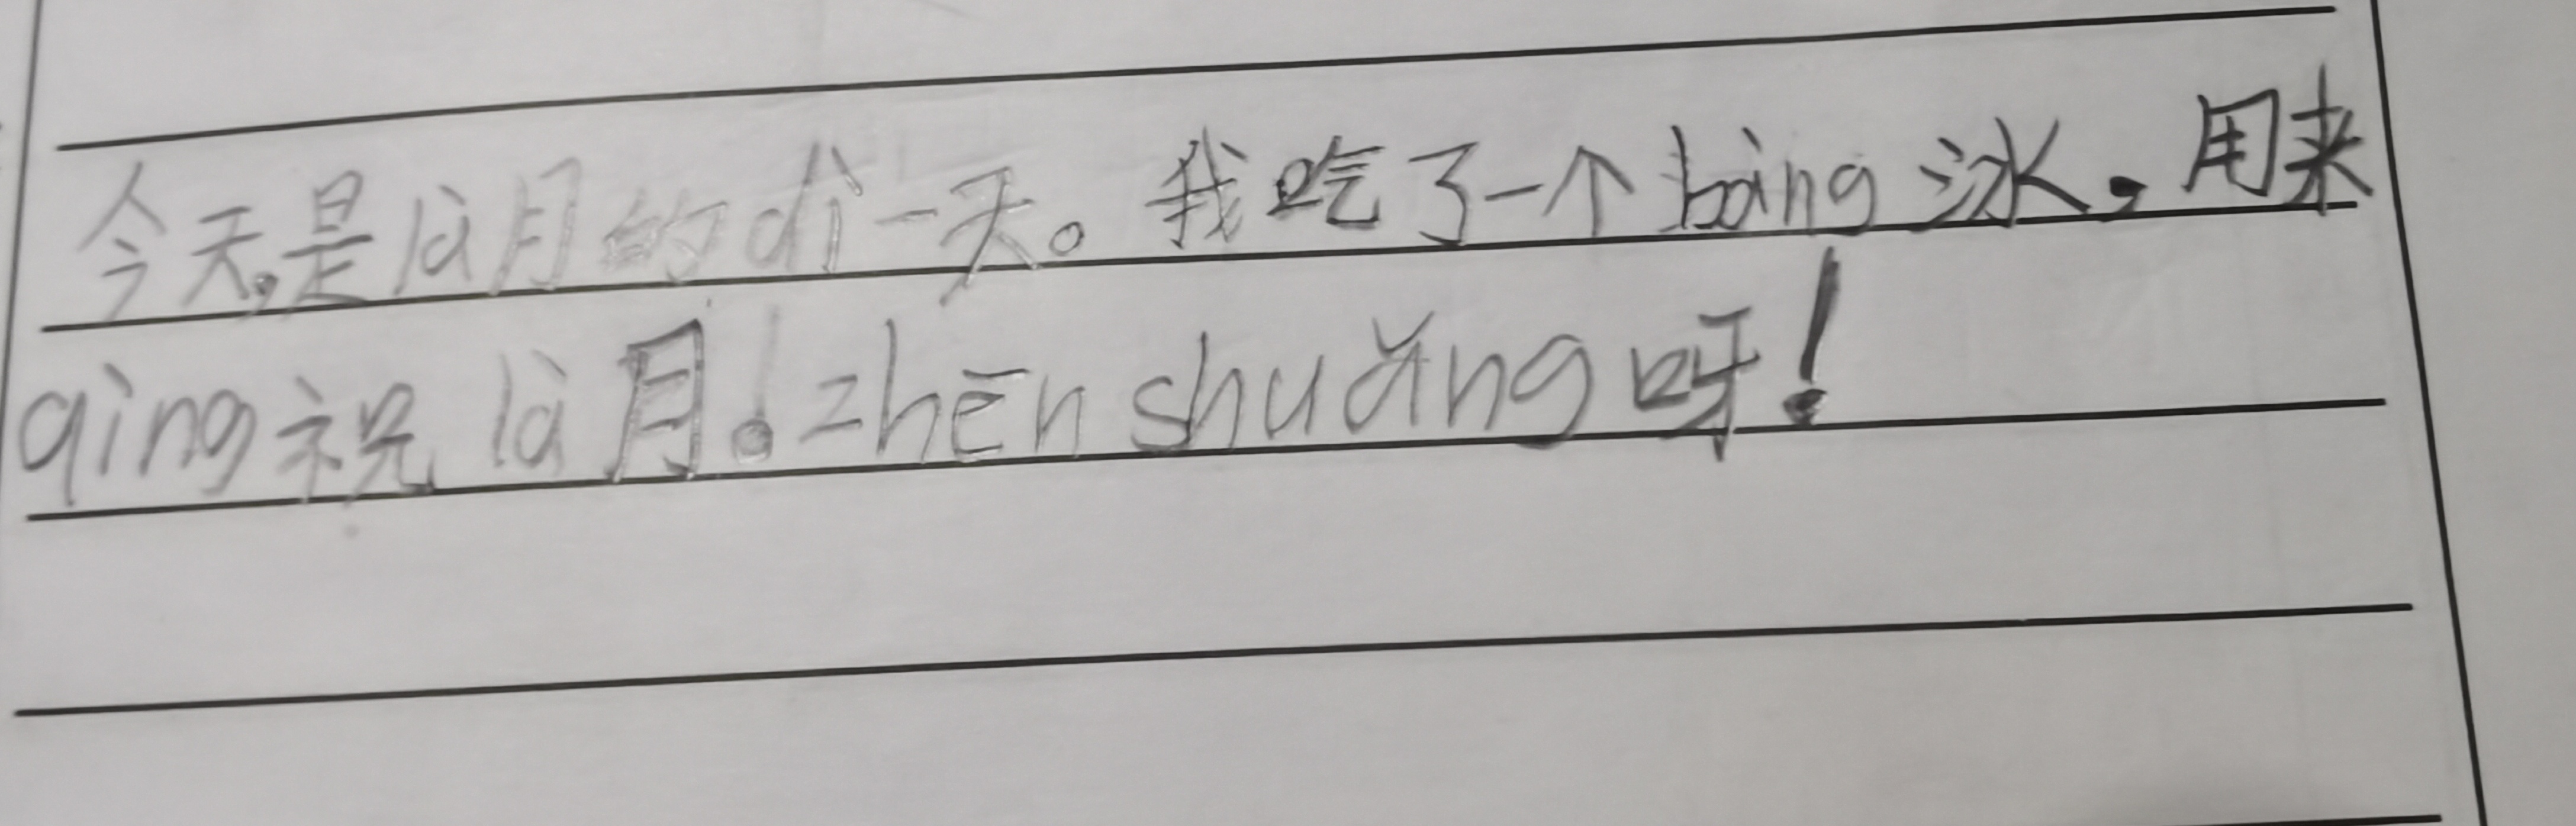 今天,是là月的dì一天。我吃了一个bàing冰,用来
qìng祝là月!zhēn shuǎng呀!